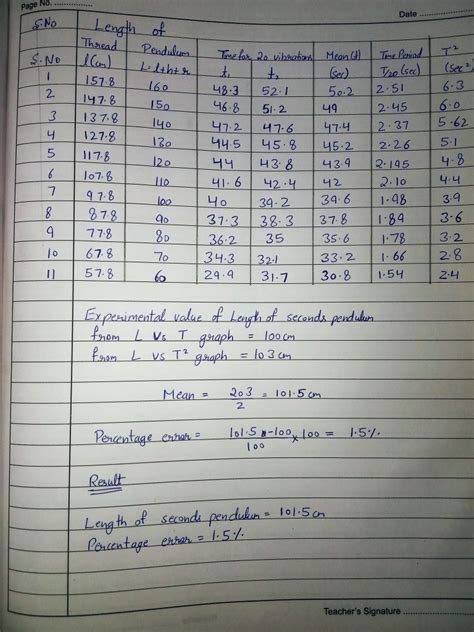 Page No. ......
Date ..............
S.No Length of
S.No Thread l(cm) Pendulum L=l+h+r Time for 20 vibrations t₁ t₂ Mean(t) (sec) Time Period T/20 (sec) T² (sec²)
1 157.8 160 48.3 52.1 50.2 2.51 6.3
2 147.8 150 46.8 51.2 49 2.45 6.0
3 137.8 140 47.2 47.6 47.4 2.37 5.62
4 127.8 130 44.5 45.8 45.2 2.26 5.1
5 117.8 120 44 43.8 43.9 2.195 4.8
6 107.8 110 41.6 42.4 42 2.10 4.4
7 97.8 100 40 39.2 39.6 1.98 3.9
8 87.8 90 37.3 38.3 37.8 1.89 3.6
9 77.8 80 36.2 35 35.6 1.78 3.2
10 67.8 70 34.3 32.1 33.2 1.66 2.8
11 57.8 60 29.9 31.7 30.8 1.54 2.4
Experimental value of Length of seconds pendulum
from L vs T graph = 100cm
from L vs T² graph = 103cm
Mean = 203/2 = 101.5 cm
Percentage error = 101.5-100/100 × 100 = 1.5%
Result
Length of seconds pendulum = 101.5cm
Percentage error = 1.5%
Teacher's Signature ..............